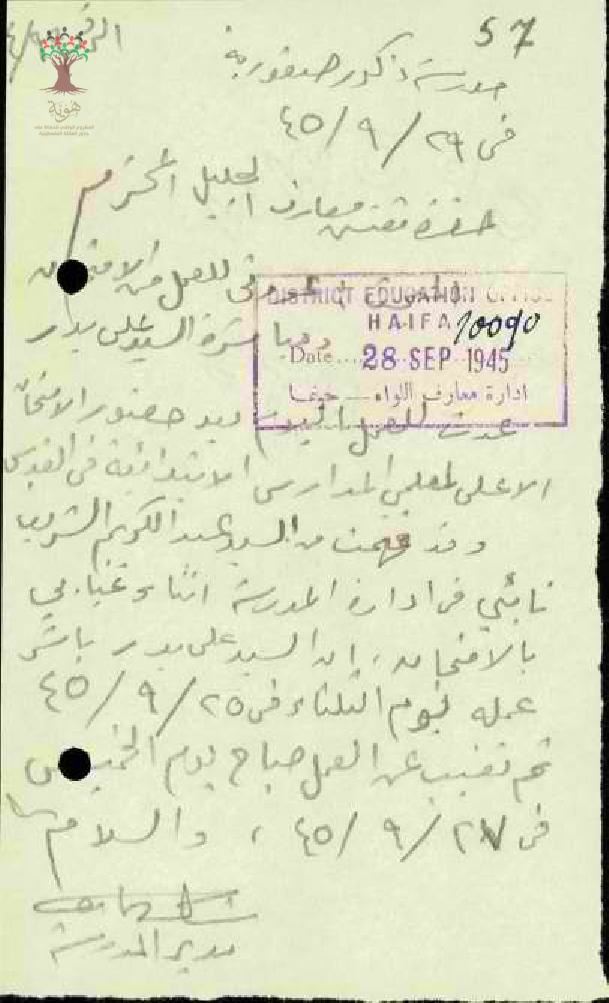 57
الرقم
هوية
مدرسة ذكور صفورية
في ٢٩/٩/٤٥
حضرة مفتش معارف الجليل المحترم
للعمل من الامتحان
DISTRICT EDUCATION OFFICE
HAIFA 10090
ومباشرة السيد علي بدر
Date.... 28 SEP 1945
ادارة معارف اللواء — حيفا
عدت للعمل اليوم بعد حضور الامتحان
الاعلى لمعلمي المدارس الابتدائية في القدس
وقد فهمت من السيد عبد الكريم الشريف
نائبي في ادارة المدرسة اثناء غيابي
بالامتحان، ان السيد علي بدر باشر
عمله يوم الثلثاء في ٢٥/٩/٤٥
ثم تغيب عن العمل صباح يوم الخميس
في ٢٧/٩/٤٥، والسلام
مدير المدرسة